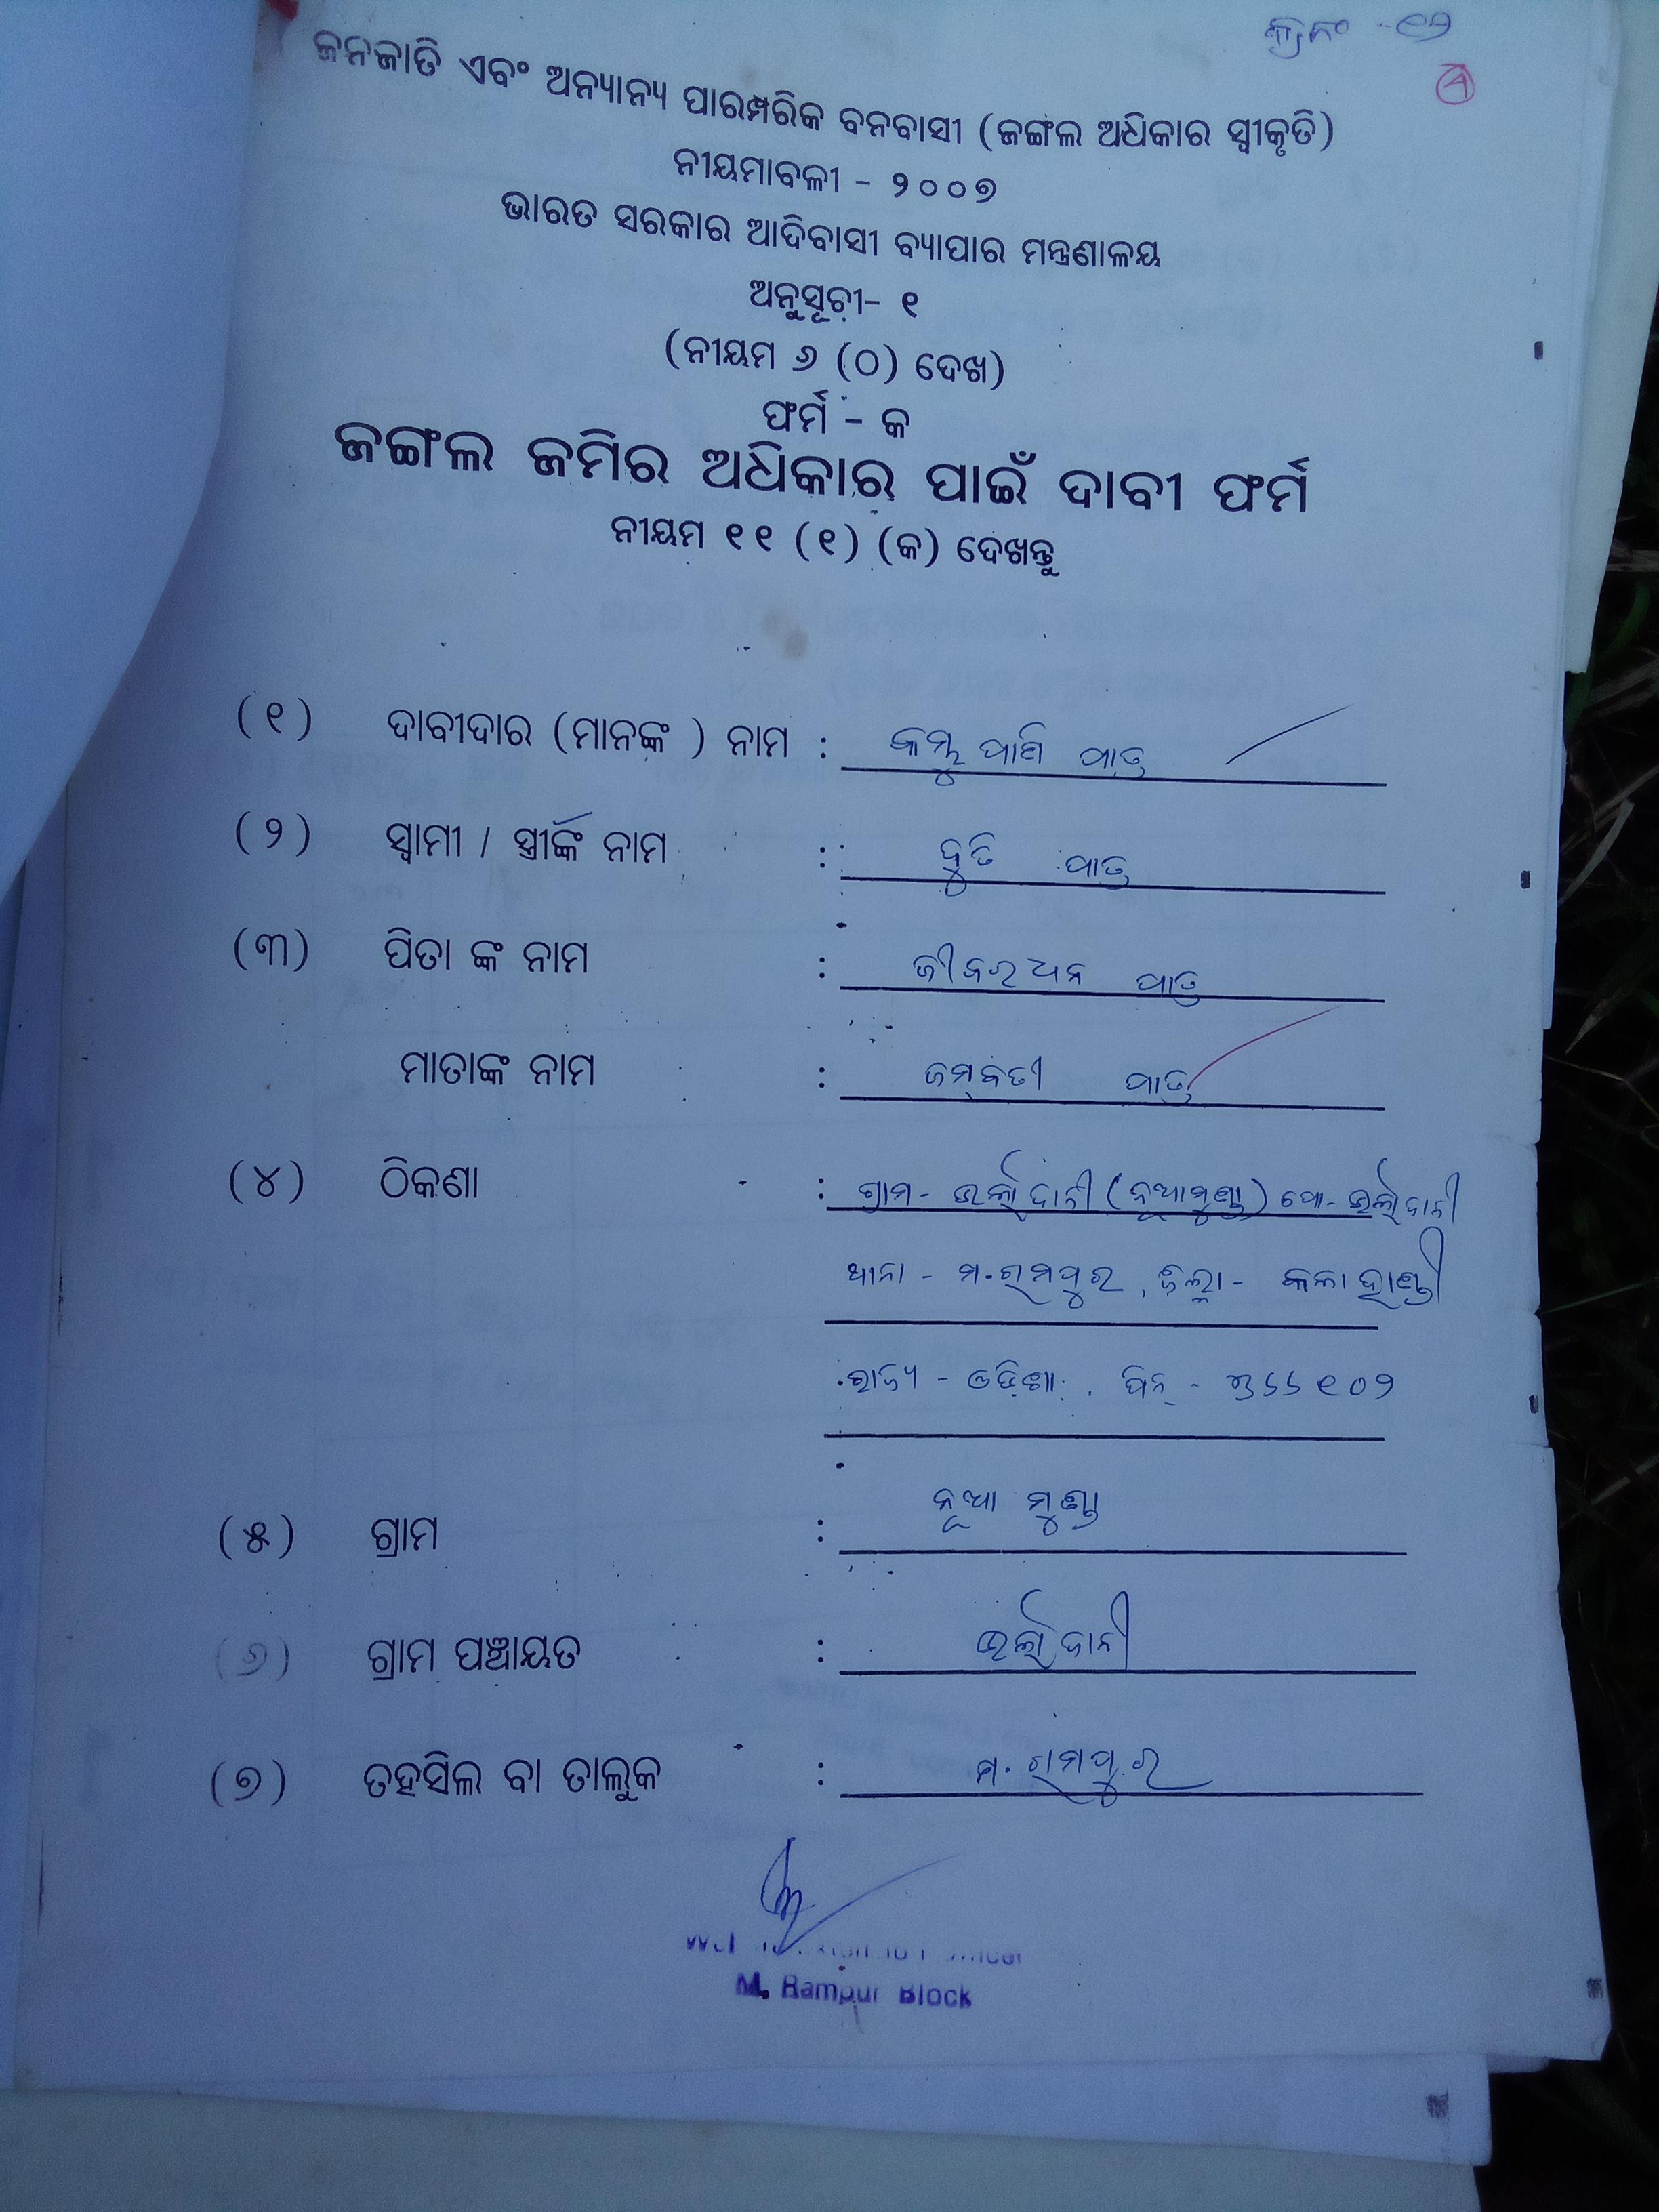 କ୍ରନଂ - ୧୨
ଜନଜାତି ଏବଂ ଅନ୍ୟାନ୍ୟ ପାରମ୍ପରିକ ବନବାସୀ (ଜଙ୍ଗଲ ଅଧିକାର ସ୍ୱୀକୃତି)
ନୀୟମାବଳୀ - ୨୦୦୭
ଭାରତ ସରକାର ଆଦିବାସୀ ବ୍ୟାପାର ମନ୍ତ୍ରଣାଳୟ
ଅନୁସୂଚୀ- ୧
(ନୀୟମ ୬ (୦) ଦେଖ)
ଫର୍ମ - କ
ଜଙ୍ଗଲ ଜମିର ଅଧିକାର ପାଇଁ ଦାବୀ ଫର୍ମ
ନୀୟମ ୧୧ (୧) (କ) ଦେଖନ୍ତୁ
(୧) ଦାବୀଦାର (ମାନଙ୍କ ) ନାମ : ପାଣି ପାତ୍ର
(୨) ସ୍ୱାମୀ / ସ୍ତ୍ରୀଙ୍କ ନାମ : ଦୁତି ପାତ୍ର
(୩) ପିତା ଙ୍କ ନାମ : ଜୀବରଧନ ପାତ୍ର
ମାତାଙ୍କ ନାମ : ଜମ୍ବବତୀ ପାତ୍ର
(୪) ଠିକଣା : ଗ୍ରାମ - (ନୂଆମୁଣ୍ଡା) ପୋ-
ଥାନା - ମ.ରାମପୁର, ଜିଲ୍ଲା - କଳାହାଣ୍ଡି
ରାଜ୍ୟ - ଓଡ଼ିଶା, ପିନ୍ - ୭୬୬୧୦୨
(୫) ଗ୍ରାମ : ନୂଆ ମୁଣ୍ଡା
(୬) ଗ୍ରାମ ପଞ୍ଚାୟତ :
(୭) ତହସିଲ ବା ତାଲୁକ : ମ. ରାମପୁର
M. Rampur Block